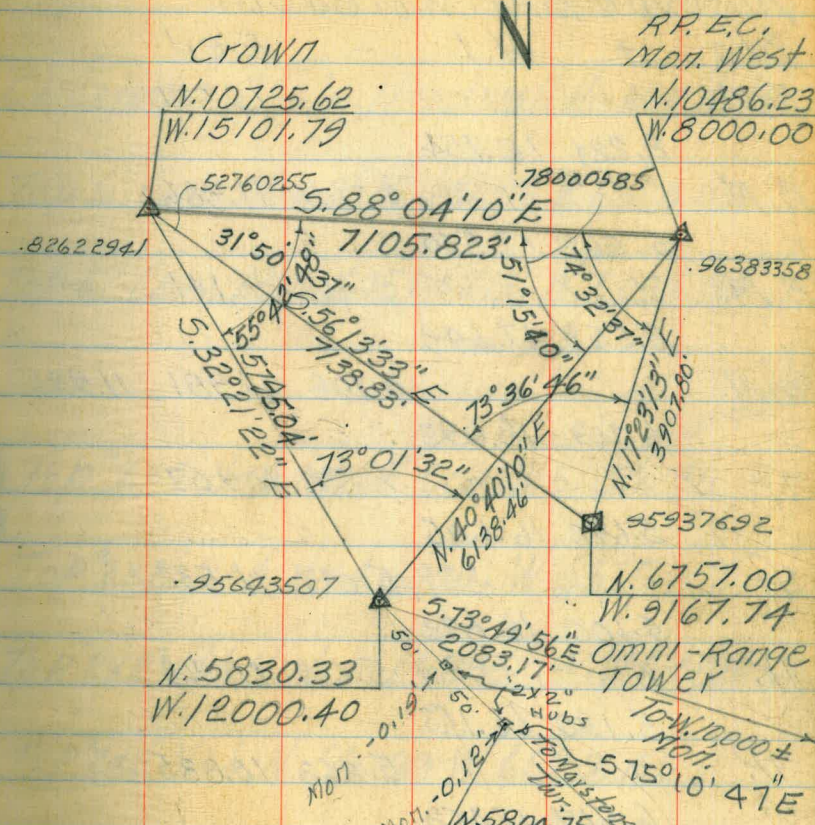 N
Crown
N.10725.62
W.15101.79
R.P. E.C.
Mon. West
N.10486.23
W.8000.00
.52760255
.78000585
S.88°04'10"E
7105.823'
.82622941
.96383358
31°50'37"
55°42'48"
51°15'40"
74°32'37"
S.56°13'33"E
7138.83'
S.32°21'22"E
5795.04'
73°36'46"
N.17°23'13"E
3907.80'
73°01'32"
N.40°40'10"E
6138.46'
.95937692
.95643507
N.6757.00
W.9167.74
N.5830.33
W.12000.40
S.73°49'56"E
2083.17'
Omni-Range
Tower
50'
50'
2x2"
Hubs
To W.10,000±
Mon.
Mon.--0.19'
Mon.-0.12'
To Marston
Twr.
S75°10'47"E